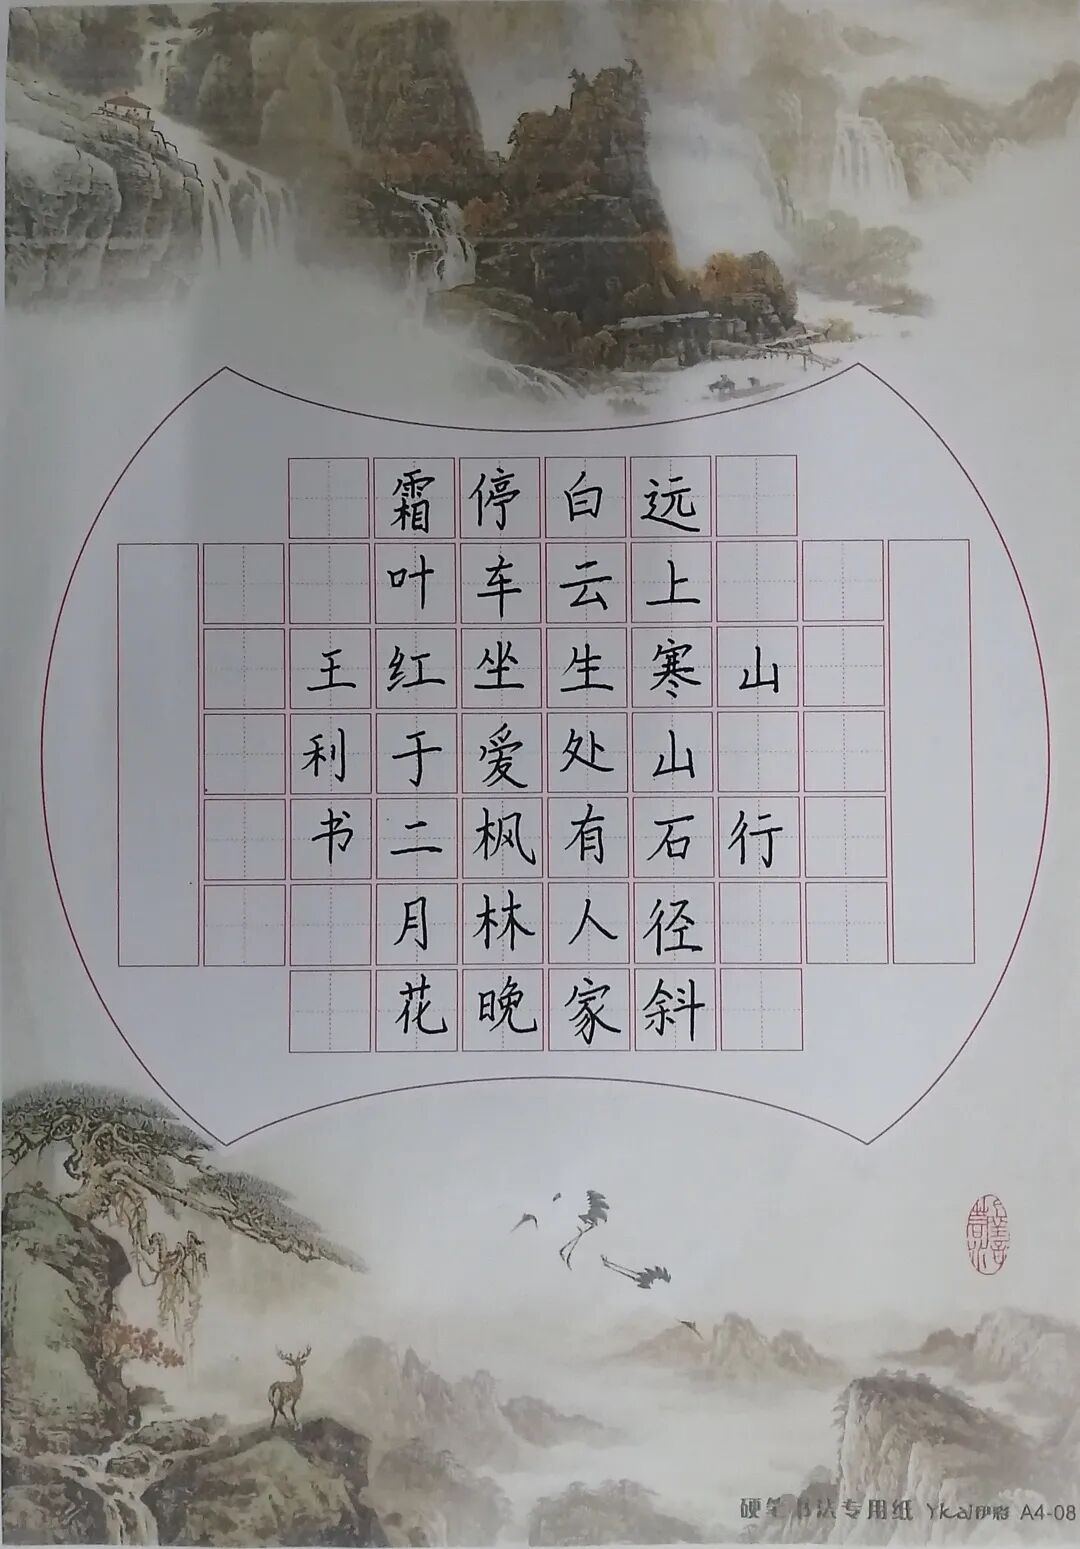 山行
远上寒山石径斜
白云生处有人家
停车坐爱枫林晚
霜叶红于二月花
王利书
硬笔书法专用纸 Ykai伊彩 A4-08